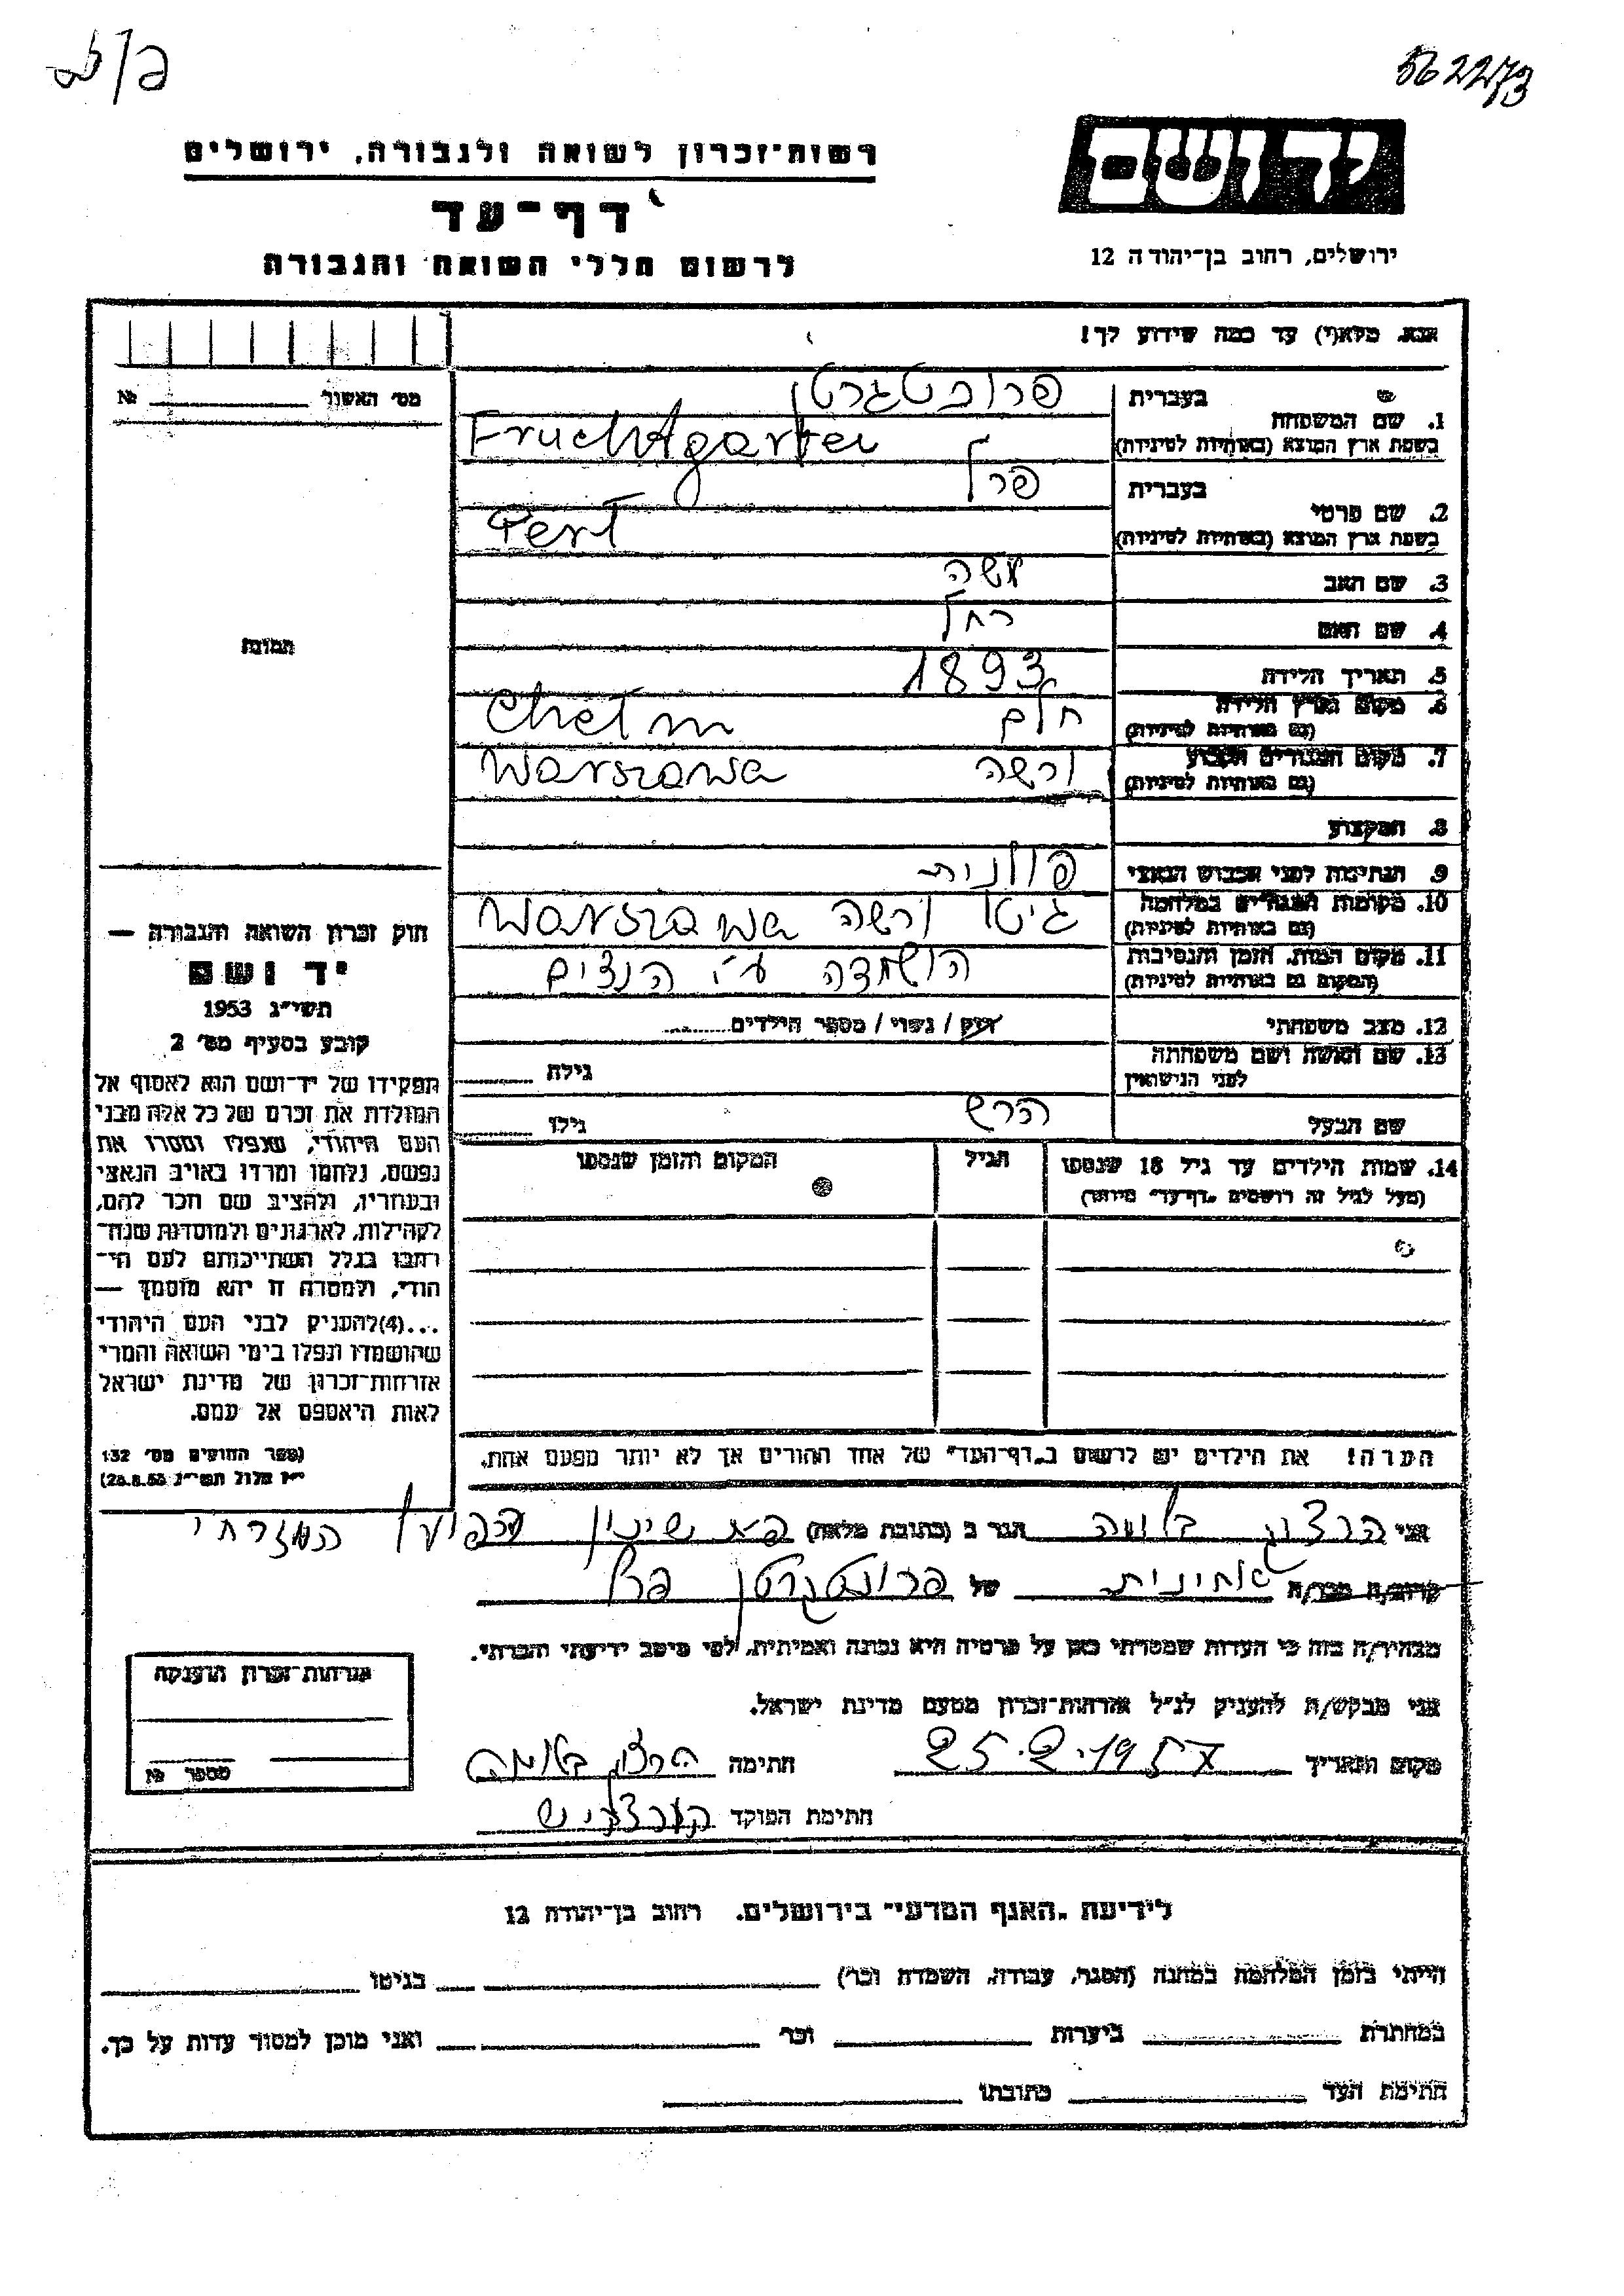 562273
רשות־זכרון לשואה ולגבורה, ירושלים
דף־עד
לרשום חללי השואה והגבורה
יד ושם
ירושלים, רחוב בן־יהודה 12
אנא, מלא(י) עד כמה שידוע לך!
מס׳ האשור № 
1. שם המשפחה
בעברית
פרוכטגרטן
בשפת ארץ המוצא (באותיות לטיניות)
Fruchtgarten
2. שם פרטי
בעברית
פרל
בשפת ארץ המוצא (באותיות לטיניות)
Perl
3. שם האב משה
4. שם האם רחל
5. תאריך הלידה 1893
6. מקום וארץ הלידה חלם Chełm
(גם באותיות לטיניות)
7. מקום המגורים הקבוע ורשה Warszawa
(גם באותיות לטיניות)
8. המקצוע
9. הנתינות לפני הכבוש הנאצי פולנית
10. מקומות המגורים במלחמה גיטו ורשה Warszawa
(גם באותיות לטיניות)
11. מקום המות, הזמן והנסיבות הושמדה ע״י הנצים
(המקום גם באותיות לטיניות)
12. מצב משפחתי רווק / נשוי / מספר הילדים
13. שם האשה ושם משפחתה
לפני הנישואין
גילה
שם הבעל הרש גילו
14. שמות הילדים עד גיל 18 שנספו
(מעל לגיל זה רושמים „דף־עד״ מיוחד)
הגיל
המקום והזמן שנספו
הערה! את הילדים יש לרשום ב„דף־העד״ של אחד ההורים אך לא יותר מפעם אחת.
תמונה
חוק זכרון השואה והגבורה —
יד ושם
תשי״ג 1953
קובע בסעיף מס׳ 2
תפקידו של יד־ושם הוא לאסוף אל
המולדת את זכרם של כל אלה מבני
העם היהודי, שנפלו ומסרו את
נפשם, נלחמו ומרדו באויב הנאצי
ובעוזריו, ולהציב שם וזכר להם,
לקהילות, לארגונים ולמוסדות שנח־
רבו בגלל השתייכותם לעם הי־
הודי, ולמטרה זו יהא מוסמך —
...(4)להעניק לבני העם היהודי
שהושמדו ונפלו בימי השואה והמרי
אזרחות־זכרון של מדינת ישראל
לאות היאספם אל עמם.
(ספר החוקים מס׳ 132
י״ז אלול תשי״ג 28.8.53)
אני הרצוג בלומה הגר ב (כתובת מלאה) הפועל המזרחי
קרוב/ה מכר/ה אחינית של פרוכטגרטן פרל
מצהיר/ה בזה כי העדות שמסרתי כאן על פרטיה היא נכונה ואמיתית, לפי מיטב ידיעתי והכרתי.
אני מבקש/ת להעניק לנ״ל אזרחות־זכרון מטעם מדינת ישראל.
מקום ותאריך 25.2.1957 חתימה הרצוג בלומה
חתימת הפוקד
אזרחות־זכרון הוענקה
מספר №
לידיעת „האגף המדעי״ בירושלים, רחוב בן־יהודה 12
הייתי בזמן המלחמה במחנה (הסגר, עבודה, השמדה וכו׳) בגיטו
במחתרת ביערות וכו׳ ואני מוכן למסור עדות על כך.
חתימת העד כתובתו